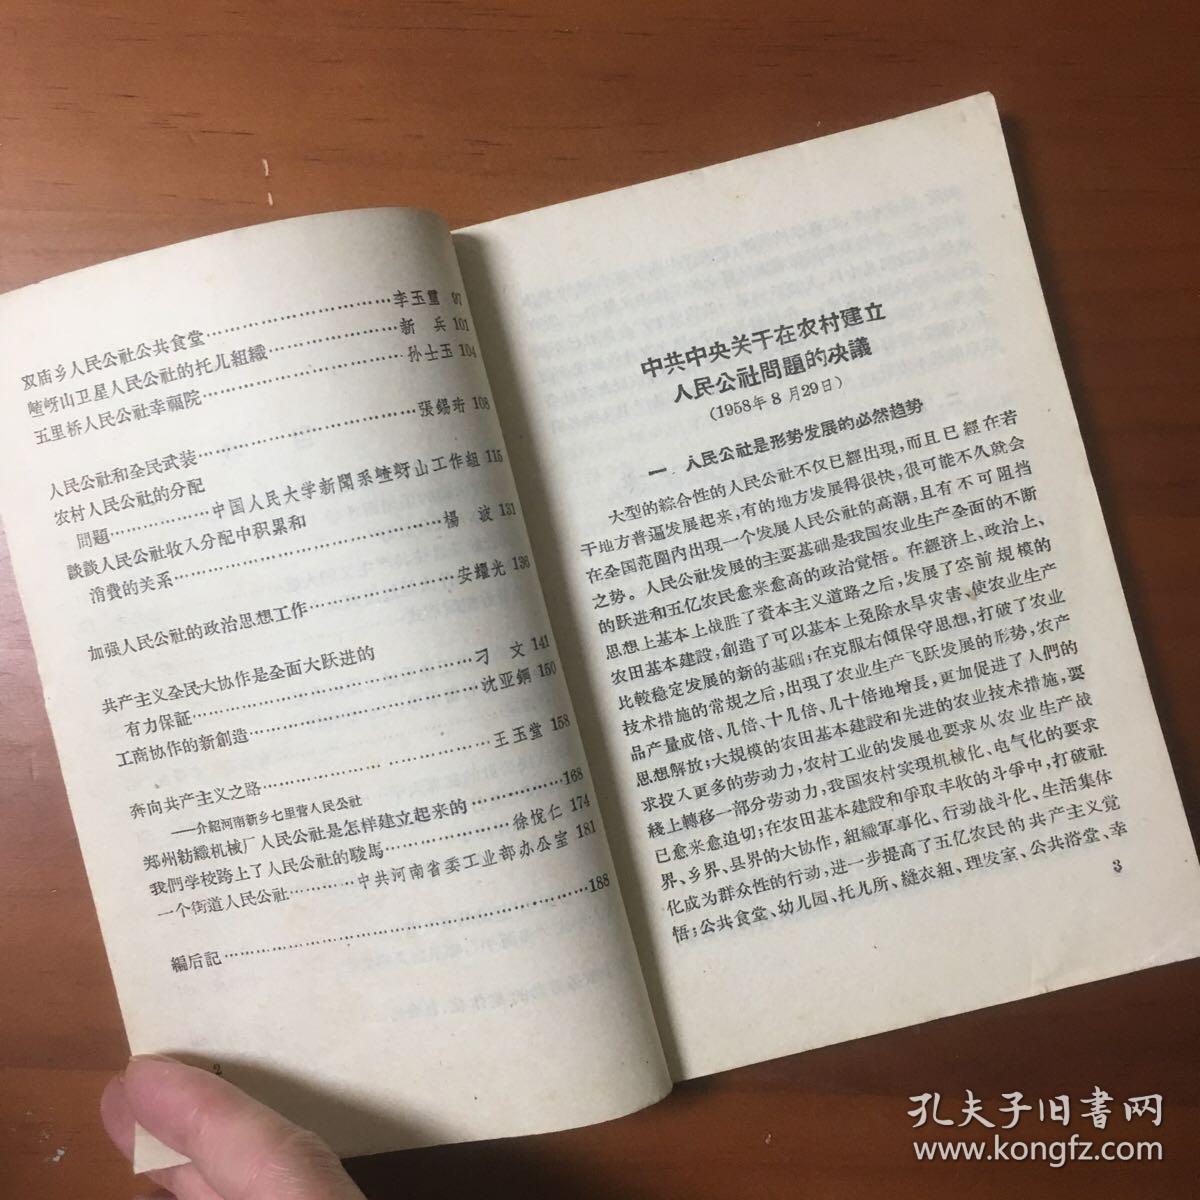 双庙乡人民公社公共食堂……………………李玉璽 97
嵖岈山卫星人民公社的托儿組織……………新 兵 101
五里桥人民公社幸福院………………………孙士玉 104
人民公社和全民武装…………………………張錫珩 108
农村人民公社的分配
問題………………中国人民大学新聞系嵖岈山工作組 115
談談人民公社收入分配中积累和
消費的关系……………………………………楊 波 131
加强人民公社的政治思想工作………………安耀光 136
共产主义全民大协作是全面大跃进的
有力保証………………………………………刁 文 141
工商协作的新創造……………………………沈亚鋼 150
奔向共产主义之路……………………………王玉堂 158
——介紹河南新乡七里营人民公社
郑州紡織机械厂人民公社是怎样建立起来的………………168
我們学校跨上了人民公社的駿馬……………徐悅仁 174
一个街道人民公社…………中共河南省委工业部办公室 181
編后記……………………………………………………188
2
中共中央关于在农村建立
人民公社問題的决議
(1958年8月29日)
一、人民公社是形势发展的必然趋势
大型的綜合性的人民公社不仅已經出現,而且已經在若
干地方普遍发展起来,有的地方发展得很快,很可能不久就会
在全国范圍內出現一个发展人民公社的高潮,且有不可阻挡
之势。人民公社发展的主要基础是我国农业生产全面的不断
的跃进和五亿农民愈来愈高的政治覚悟。在經济上、政治上、
思想上基本上战胜了資本主义道路之后,发展了空前規模的
农田基本建設,創造了可以基本上免除水旱灾害、使农业生产
比較稳定发展的新的基础;在克服右傾保守思想,打破了农业
技术措施的常規之后,出現了农业生产飞跃发展的形势,农产
品产量成倍、几倍、十几倍、几十倍地增長,更加促进了人們的
思想解放;大規模的农田基本建設和先进的农业技术措施,要
求投入更多的劳动力,农村工业的发展也要求从农业生产战
綫上轉移一部分劳动力,我国农村实現机械化、电气化的要求
已愈来愈迫切;在农田基本建設和爭取丰收的斗爭中,打破社
界、乡界、县界的大协作,組織軍事化、行动战斗化、生活集体
化成为群众性的行动,进一步提高了五亿农民的共产主义覚
悟;公共食堂、幼儿园、托儿所、縫衣組、理发室、公共浴堂、幸
3
孔夫子旧書网
www.kongfz.com